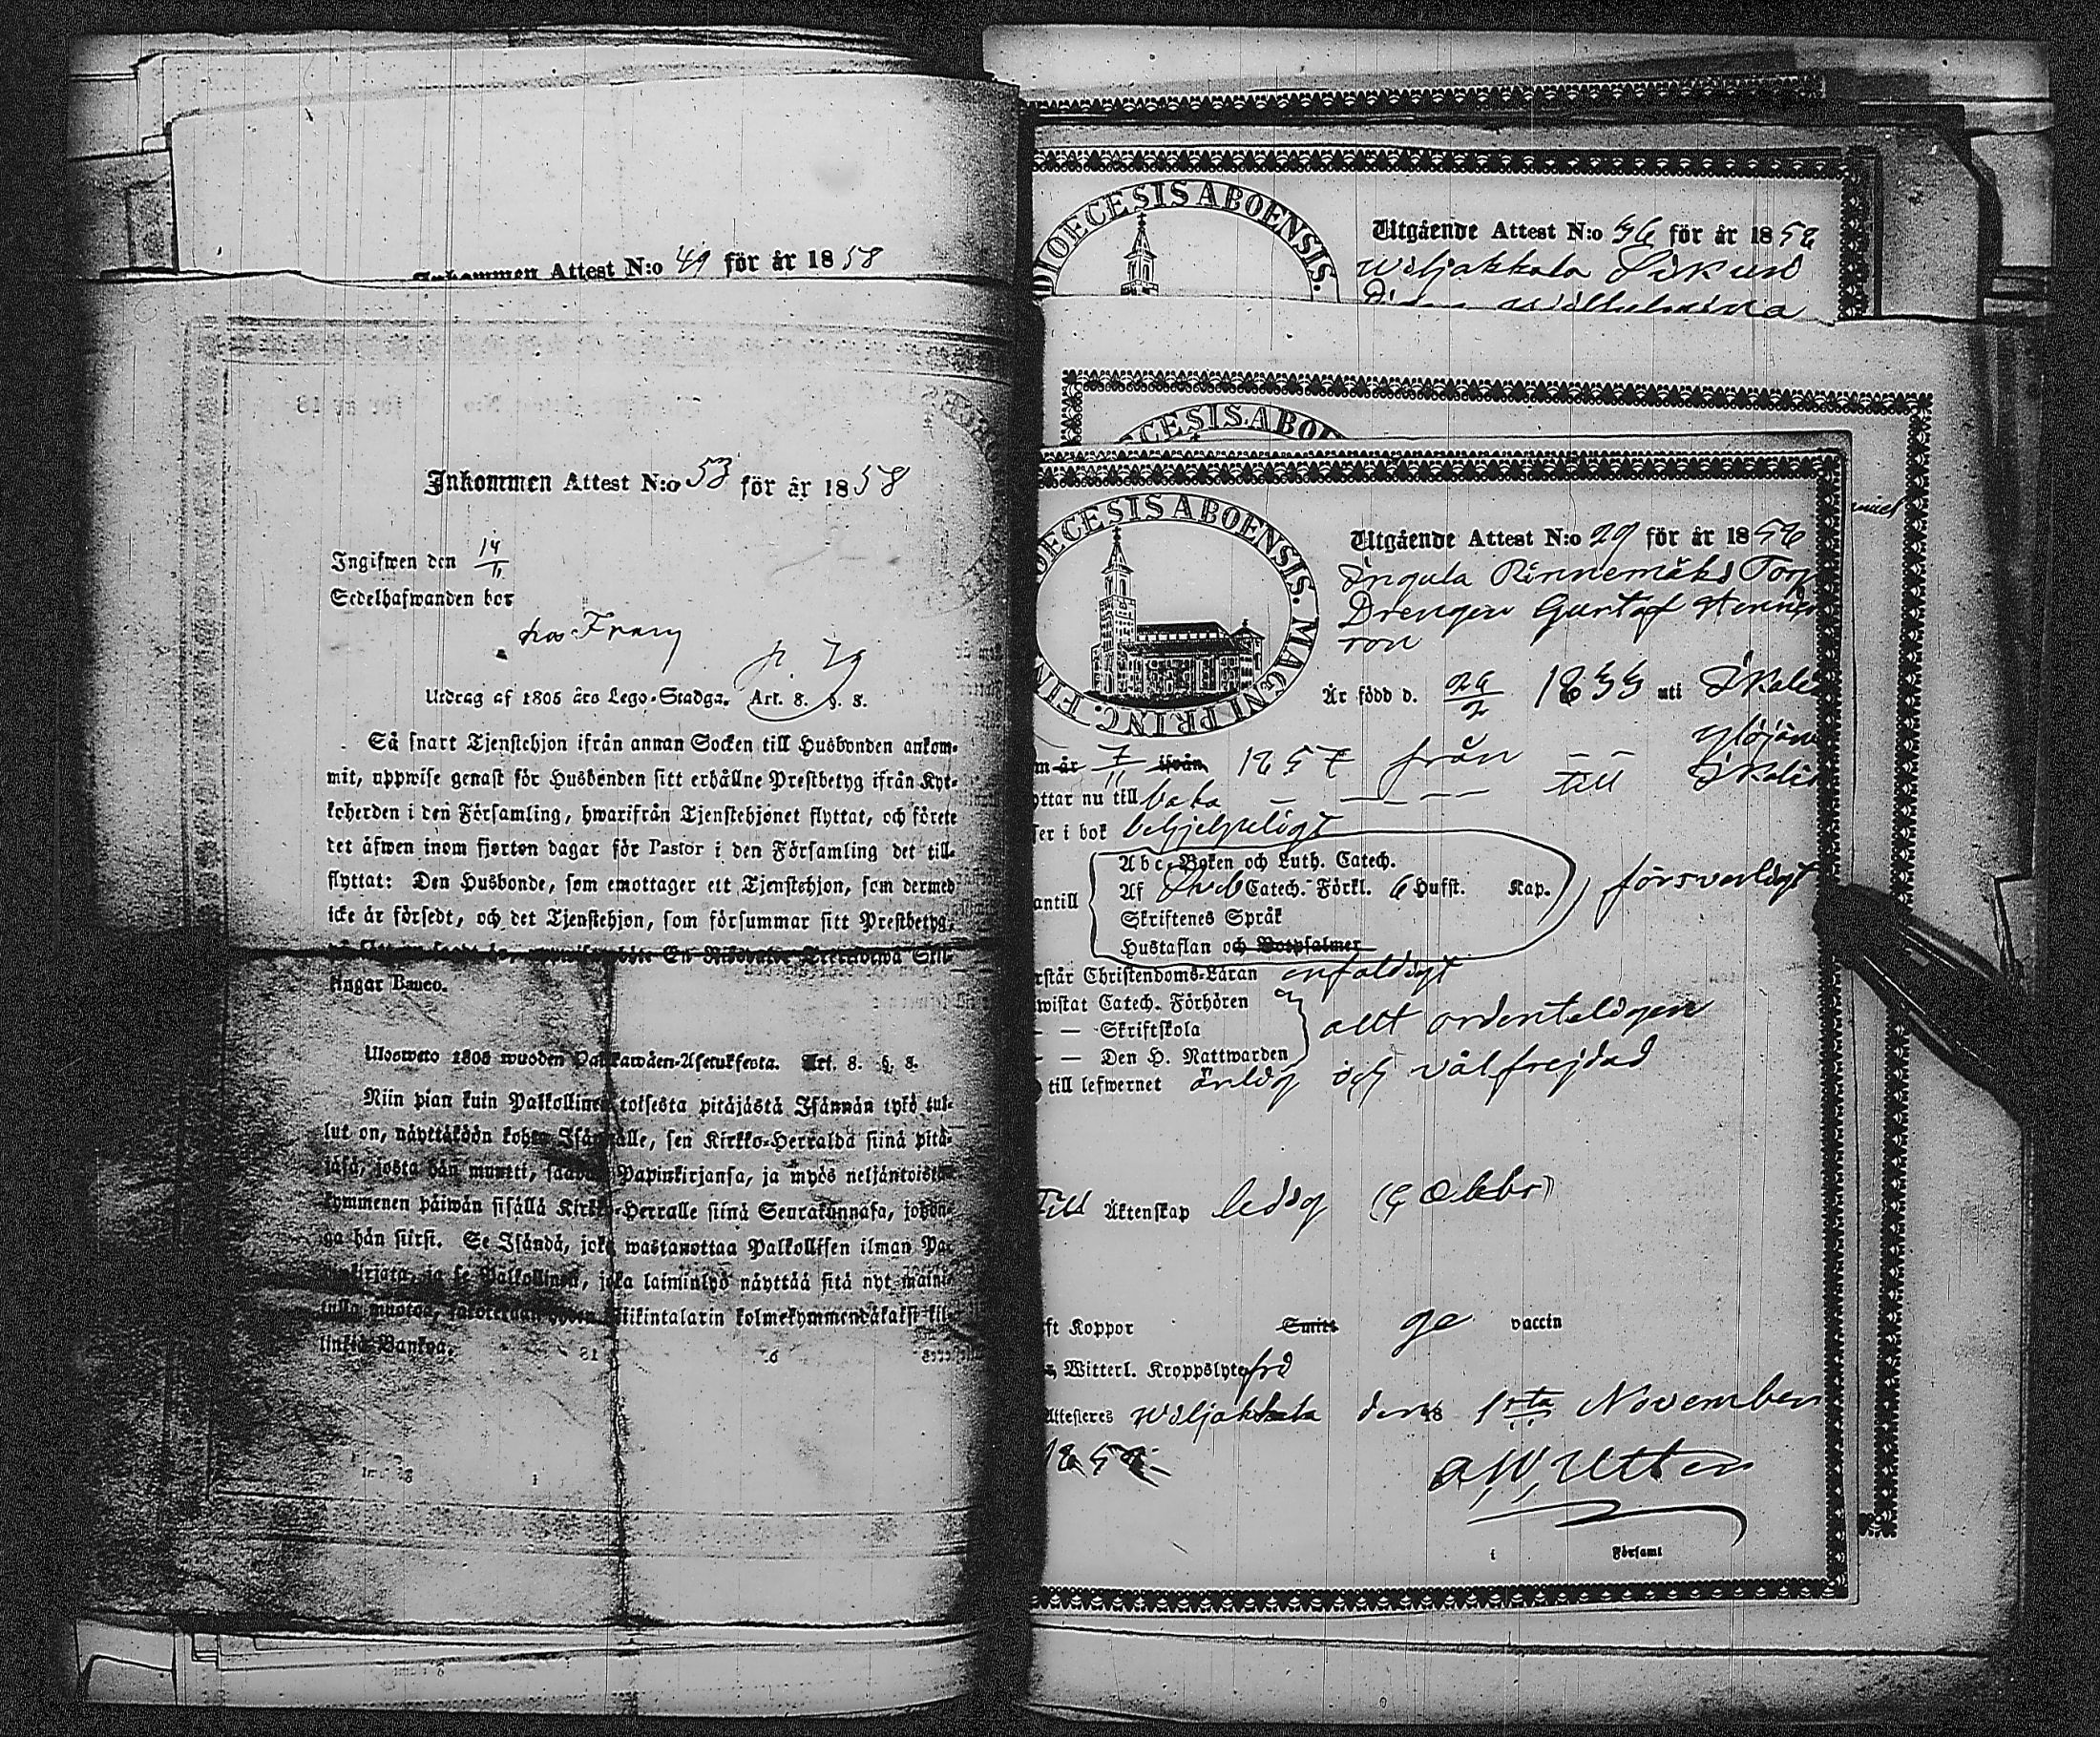 Inkommen Attest N:o 49 för år 1858
Inkommen Attest N:o 53 för år 1858
Ingifwen den 14/11
Sedelhafwanden bor
hos Frany
Utdrag af 1805 års Lego-Stadga. Art. 8. §. 8.
Så snart Tjenstehjon ifrån annan Socken till Husbonden ankom-
mit, uppwise genast för Husbonden sitt erhållne Prestbetyg ifrån Kyr-
koherden i den Församling, hwarifrån Tjenstehjonet flyttat, och förete
det äfwen inom fjorton dagar för Pastor i den Församling det till-
flyttat: Den Husbonde, som emottager ett Tjenstehjon, som dermed
icke är försedt, och det Tjenstehjon, som försummar sitt Prestbetyg,
En Riksdaler Trettiotwå Skil-
lingar Banco.
Ulosweto 1805 wuoden Palkawäen-Asetuksesta. Art. 8. §. 8.
Niin pian kuin Palkollinen toisesta pitäjästä Isännän tykö tul-
lut on, näyttäköön kohta Isännälle, sen Kirkko-Herralda siinä pitä-
jäsä, josta hän muutti, saadun Papinkirjansa, ja myös neljäntoista-
kymmenen päiwän sisällä Kirkko-Herralle siinä Seurakunnasa, johon-
ga hän siirsi. Se Isändä, joka wastanottaa Palkollisen ilman Pa-
pinkirjata, ja se Palkollinen, joka laiminlyö näyttää sitä nyt maini-
tulla muotoa, Riikintalarin kolmekymmendäkaksi kil-
linkiä Bankoa.
DIOECESIS ABOENSIS.
Utgående Attest N:o 36 för år 1858
Wiljakkala
Wilhelmina
CESIS ABOE
OECESIS ABOENSIS. MAGNI PRINC. FIN
Utgående Attest N:o 29 för år 1858
Ingula Rinnemäks Torp
Drengen Gustaf
son
Är född d. 1833 uti Ikalis
Ylöjärv
m år 7/11 ifrån 1857 från
yttar nu till baka - - - - - till Ikalis
ser i bok behjelpeligt
Abc-Boken och Luth. Catech.
antill Af Catech. Förkl. 6 Hufst. Kap. försvarligt
Skriftenes Språk
Hustaflan och Botpsalmer
rstår Christendoms-Läran enfaldigt
wistat Catech. Förhören
— — Skriftskola allt ordenteligen
— — Den H. Nattwarden
till lefwernet ärlig och välfrejdad
Till Äktenskap ledig
ft Koppor Smitt ge vaccin
Witterl. Kroppslyte fri
Attesteres Wiljakkala den 18 1sta November
1858.
A W Utter
i Församl